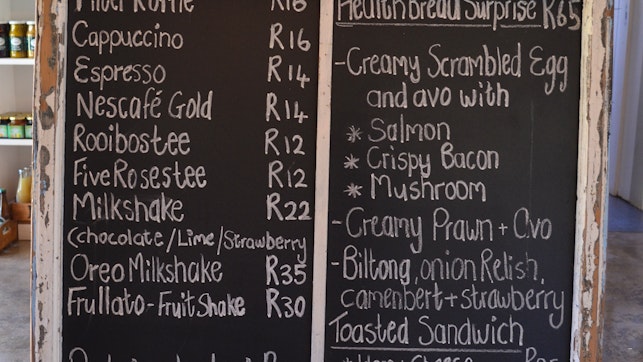 Filter Koffie R16
Cappuccino R16
Espresso R14
Nescafé Gold R14
Rooibostee R12
Five Rosestee R12
Milkshake R22
(chocolate/Lime/Strawberry
Oreo Milkshake R35
Frullato-Fruit Shake R30
Health Bread Surprise R65
-Creamy Scrambled Egg
and avo with
* Salmon
* Crispy Bacon
* Mushroom
-Creamy Prawn + Avo
-Biltong, onion Relish,
camenbert + strawberry
Toasted Sandwich